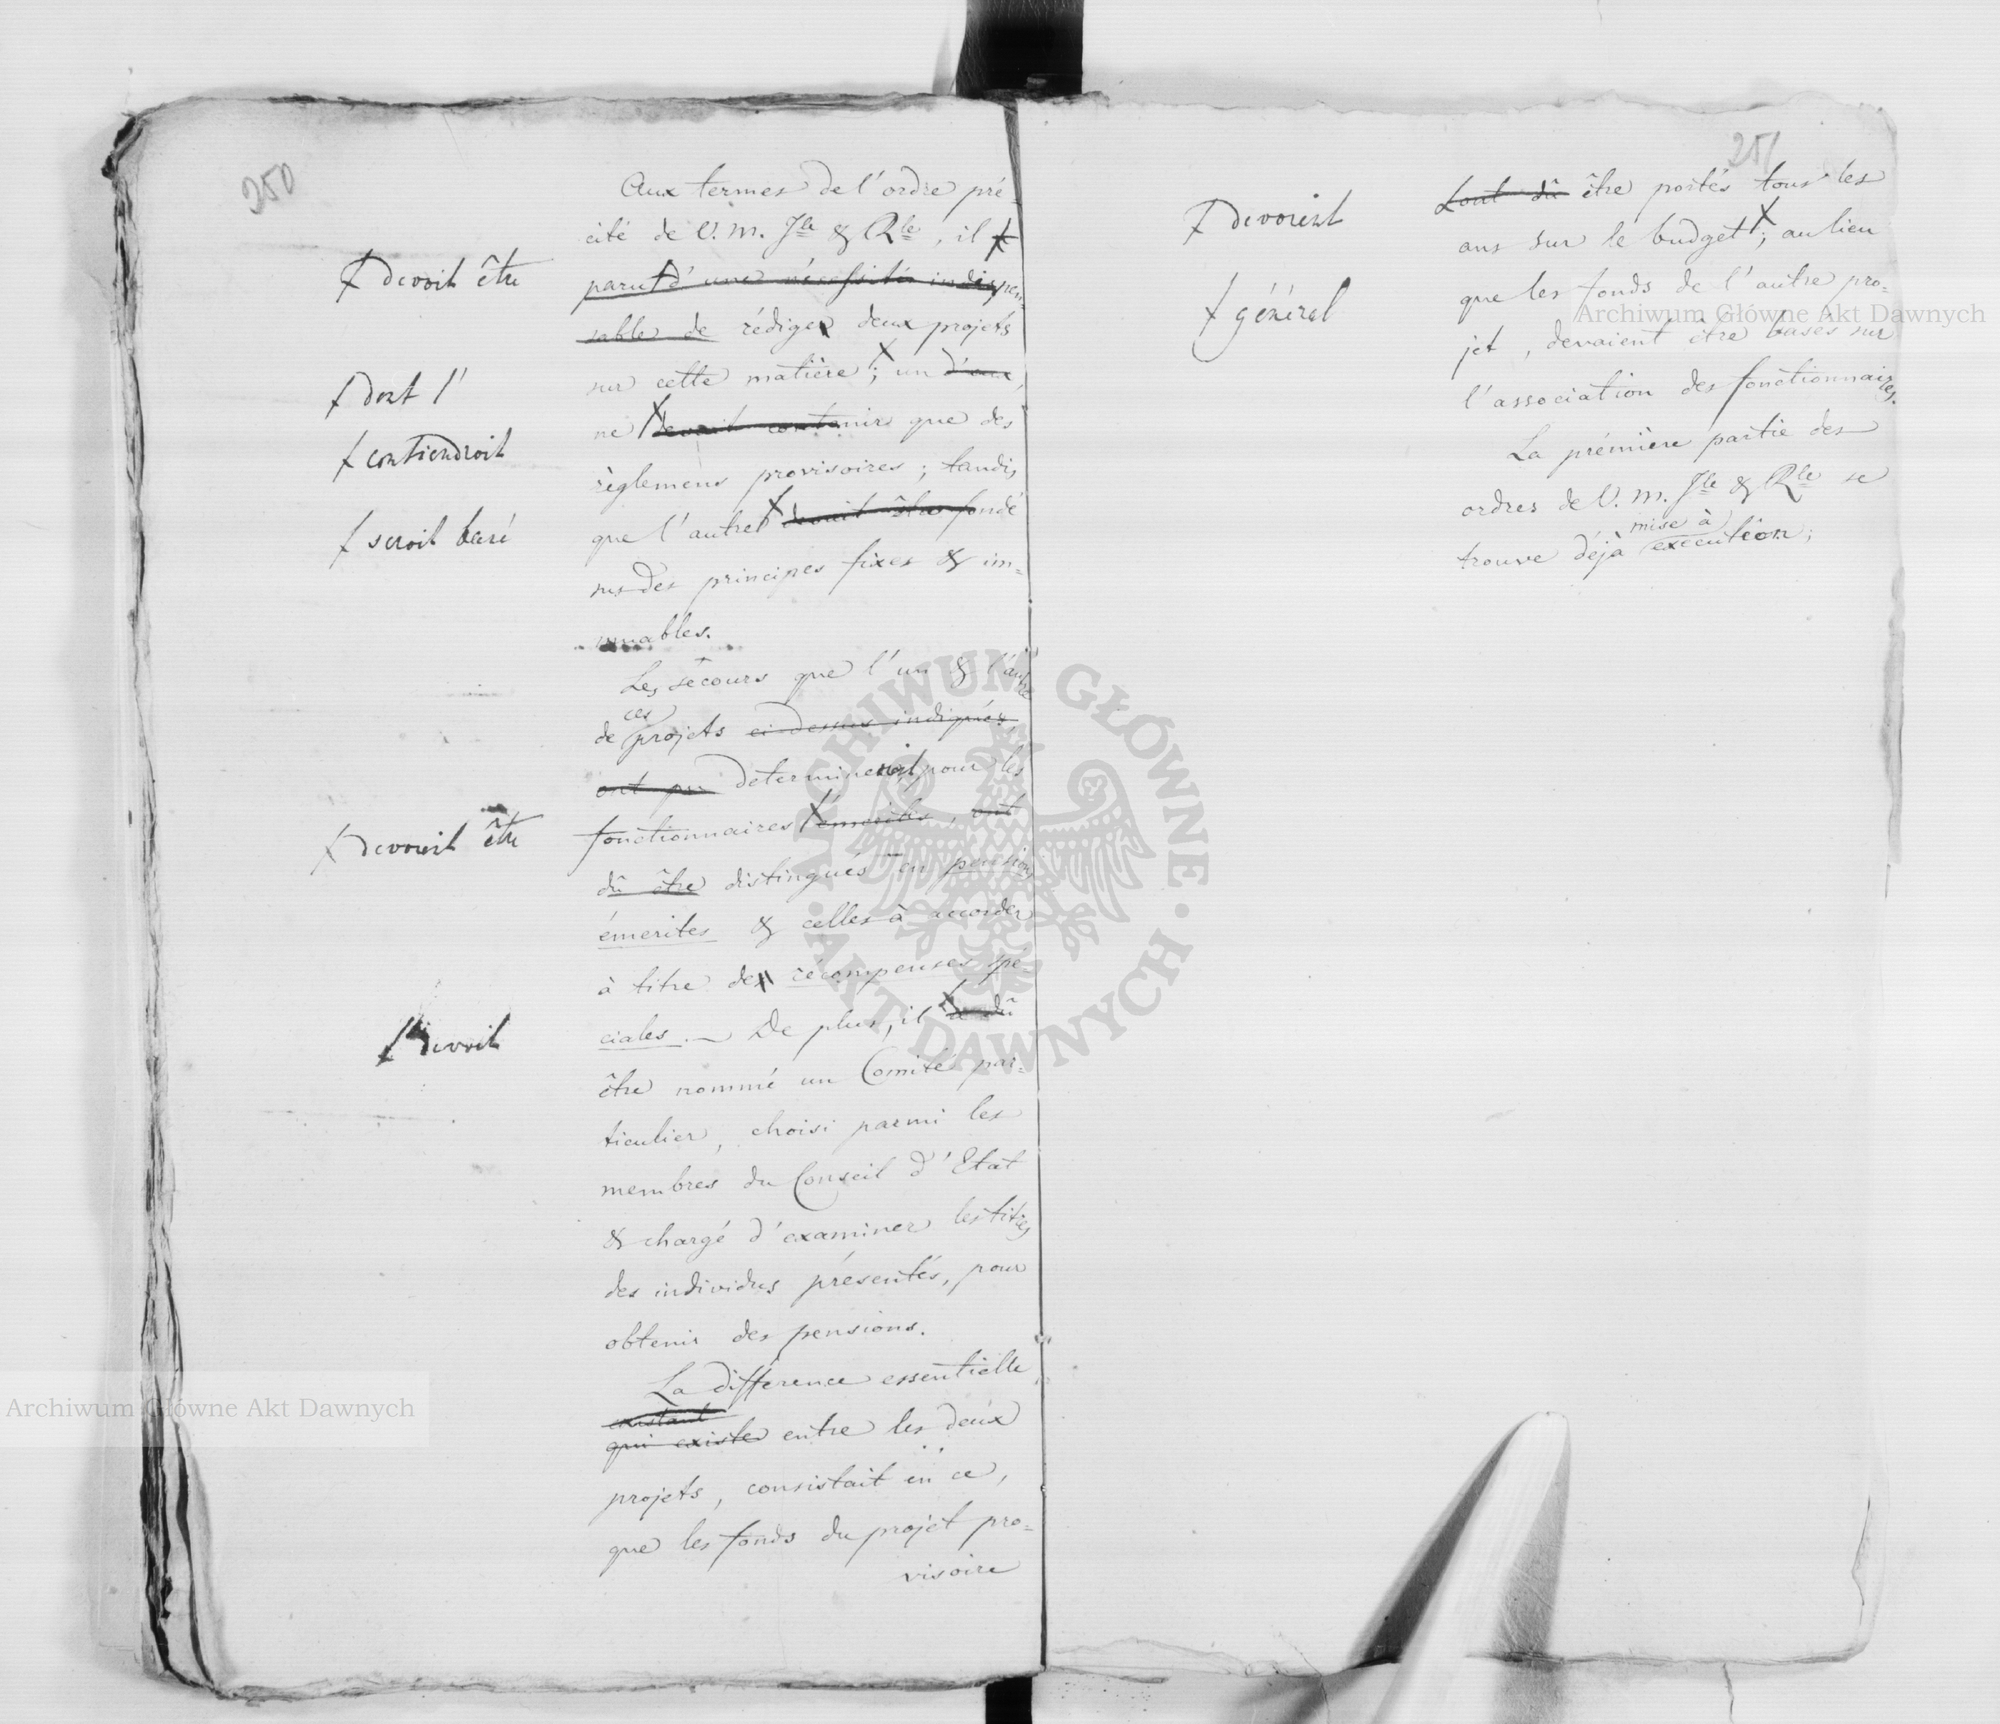 250
Aux termes de l'ordre pré-
cité de V. M. Jle & Rle, il ɫ
ɫ devoit être
parut d'une nécessité indispen-
sable de rédiger deux projets
sur cette matière; un d'eux,
ɫ dont l'
ne devait contenir que des
ɫ contiendroit
règlemens provisoires; tandis
que l'autre devait être fondé
ɫ seroit basé
sur des principes fixes & im-
muables.
Les sécours que l'un & l'autre
ces
de projets ci-dessus indiqués,
ont pu determiner pour les
fonctionnaires émerites, ont
ɫ devoient être
dû être distingués en pensions
émerites & celles à accorder
à titre de récompenses spé-
ciales. — De plus, il a dû
ɫ devoit
être nommé un Comité par-
ticulier, choisi parmi les
membres du Conseil d'Etat
& chargé d'examiner les titres
des individus présentés, pour
obtenir des pensions.
La difference essentielle
existant
qui existe entre les deux
projets, consistait en ce,
que les fonds du projet pro-
visoire
251
ɫ devoient
dû être portés tous les
ans sur le budget; au lieu
ɫ général
que les fonds de l'autre pro-
jet, devaient être basés sur
l'association des fonctionnaires.
La prémière partie des
ordres de V. M. Jle & Rle se
mise à
trouve déjà execution;
Archiwum Główne Akt Dawnych
Archiwum Główne Akt Dawnych
ARCHIWUM GŁÓWNE · AKT DAWNYCH ·